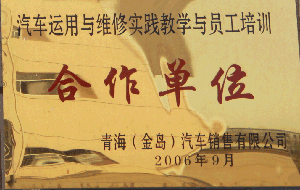 汽车运用与维修实践教学与员工培训
合作单位
青海（金岛）汽车销售有限公司
2006年9月